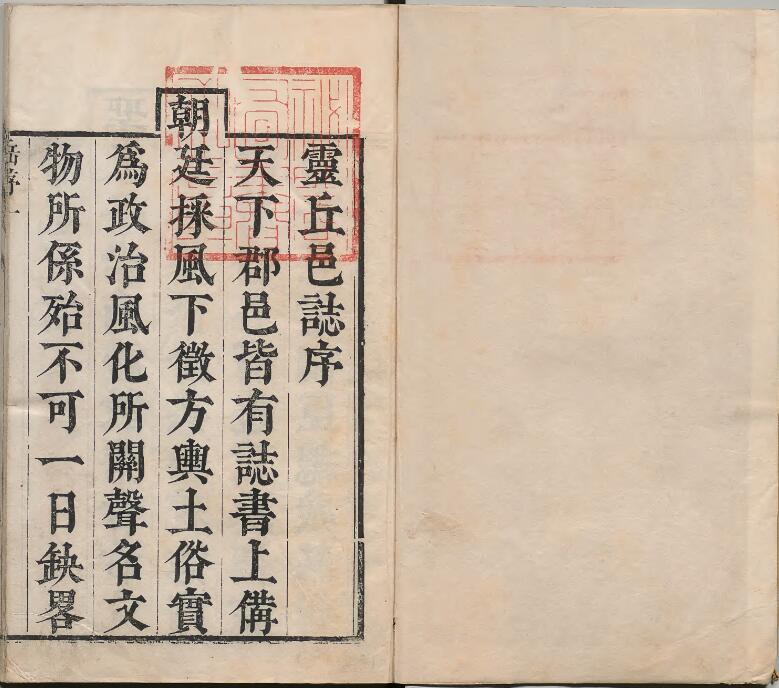 靈丘邑誌序
天下郡邑皆有誌書上備
朝廷採風下徵方輿土俗實
為政治風化所關聲名文
物所係殆不可一日缺畧